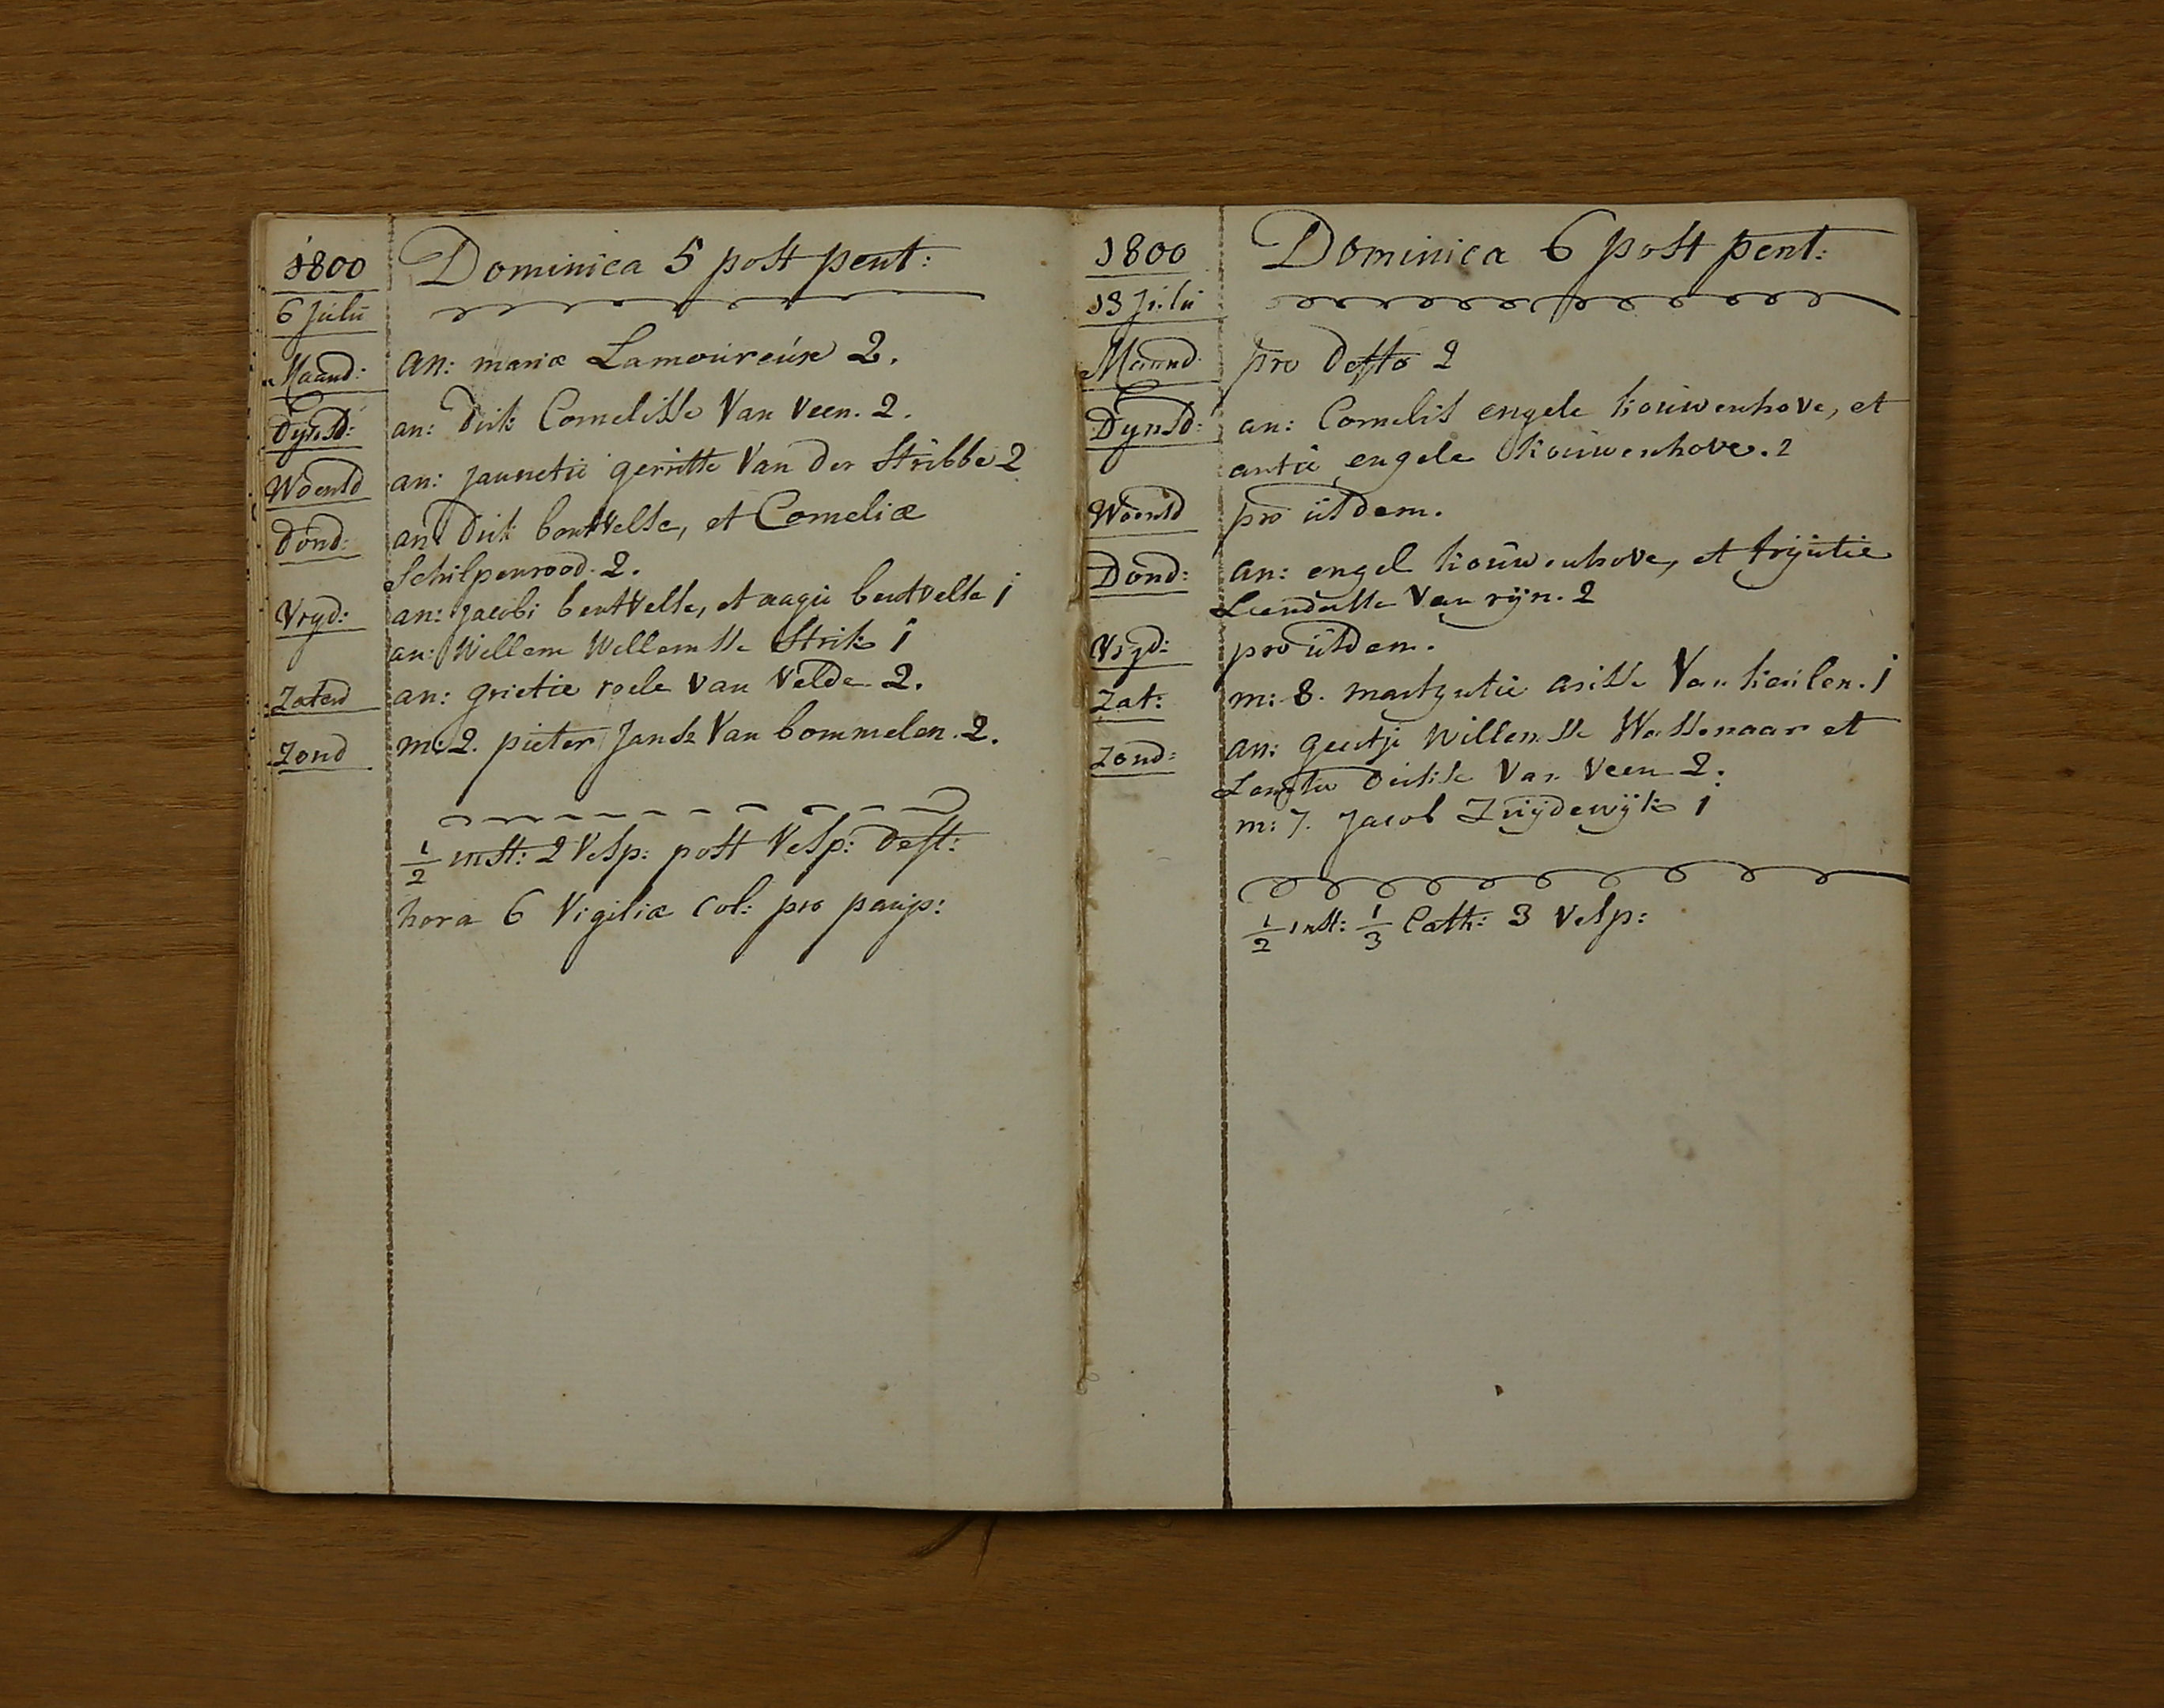 1800
Dominica 5 post pent:
6 Julii
Maand: an: mariæ Lamoureúx 2.
Dynsd: an: Dirk Cornelisse Van Veen. 2.
Woensd an: Jannetie gerritse Van der Stribbe 2
Dond: an: Dirk bentvelse, et Corneliæ
Schilpenrood. 2.
Vryd: an: Jacobi bentvelse, et aagie bentvelse i
an: Willem Willemsse Strik i
Zaterd an: grietie roele van Velde 2.
Zond m: 2. pieter Jansz Van bommelen. 2.
1/2 inst: 2 Vesp: post Vesp: Deft:
hora 6 Vigiliæ col: pro paup:
1800
Dominica 6 post pent:
13 Julii
Maand pro Defto 2
Dynsd: an: Cornelis engele kouwenhove, et
antie engele kouwenhove. 2
Woensd pro iisdem.
Dond: an: engel kouwenhove, et trijntie
Leendertse Van rijn. 2
Vryd: pro iisdem.
Zat: m: 8. martyntie arisse Van keulen. i
Zond: an: geertje Willemsse Wassenaar et
Dirkse Van Veen 2.
m: 7. Jacob Zuijdewijk i
1/2 inst: 1/3 Cath: 3 Vesp: